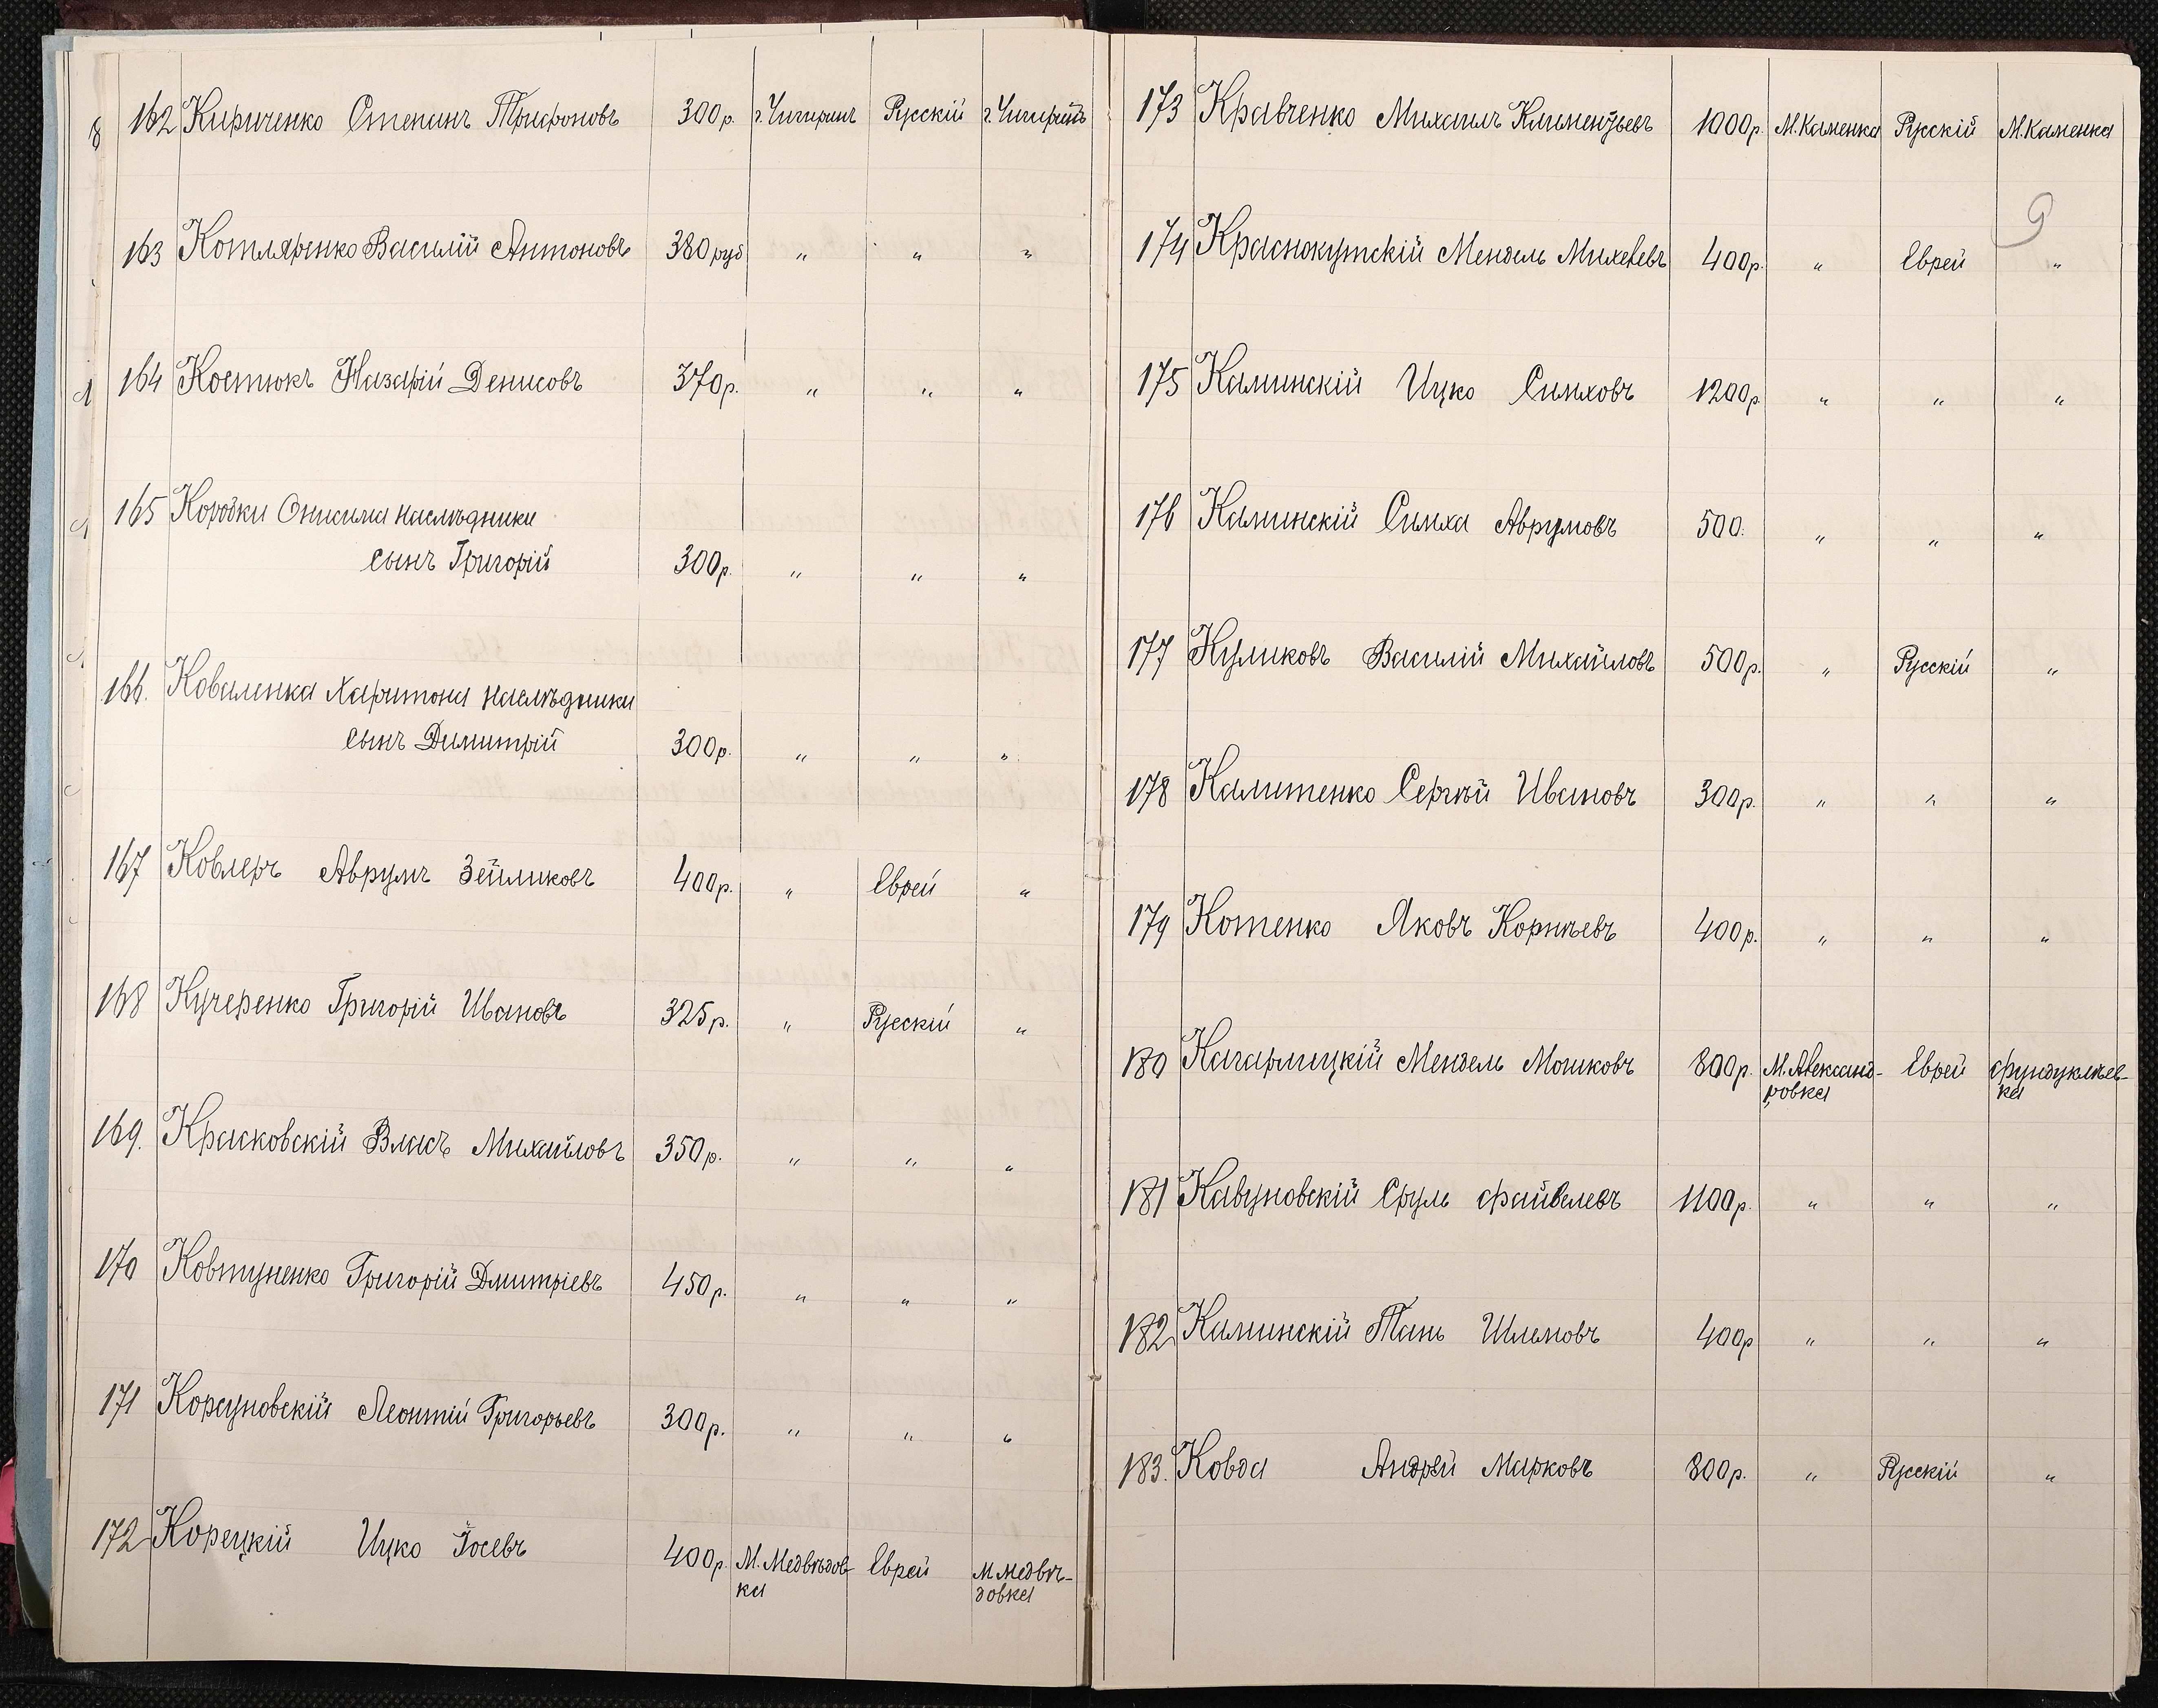 8
162 Кириченко Степанъ Трифоновъ 300р. г. Чигиринъ Русскій г. Чигиринъ
163 Котляренко Василій Антоновъ 380 руб " " "
164 Костюкъ Назарій Денисовъ 370р. " " "
165 Коробки Онисима наслѣдники
сынъ Григорій 300р. " " "
166. Коваленка Харитона наслѣдники
сынъ Димитрій 300р. " " "
167 Ковлеръ Аврумъ Зейликовъ 400р. " Еврей "
168 Кучеренко Григорій Ивановъ 325р. " Русскій "
169. Красковскій Власъ Михайловъ 350р. " " "
170 Ковтуненко Григорій Дмитріевъ 450р. " " "
171 Корсуновскій Леонтій Григорьевъ 300р. " " "
172 Корецкій Ицко Іосевъ 400р. М. Медвѣдов- Еврей М. Медвѣ-
ка довка
173 Кравченко Михаилъ Климентьевъ 1000р. М. Каменка Русскій М. Каменка
9
174 Краснокутскій Мендель Михелевъ 400р. " Еврей "
175 Калинскій Ицко Симховъ 1200р. " " "
176 Калинскій Симха Аврумовъ 500. " " "
177 Куликовъ Василій Михайловъ 500р. " Русскій "
178 Калитенко Сергѣй Ивановъ 300р. " " "
179 Котенко Яковъ Корнѣевъ 400р. " " "
180 Кагарлицкій Мендель Мошковъ 800р. М. Александ- Еврей Фундуклѣев-
ровка ка
181 Кавуновскій Сруль Файвелевъ 1100р. " " "
182 Калинскій Шлемовъ 400р " " "
183. Ковда Андрей Марковъ 800р. " Русскій "